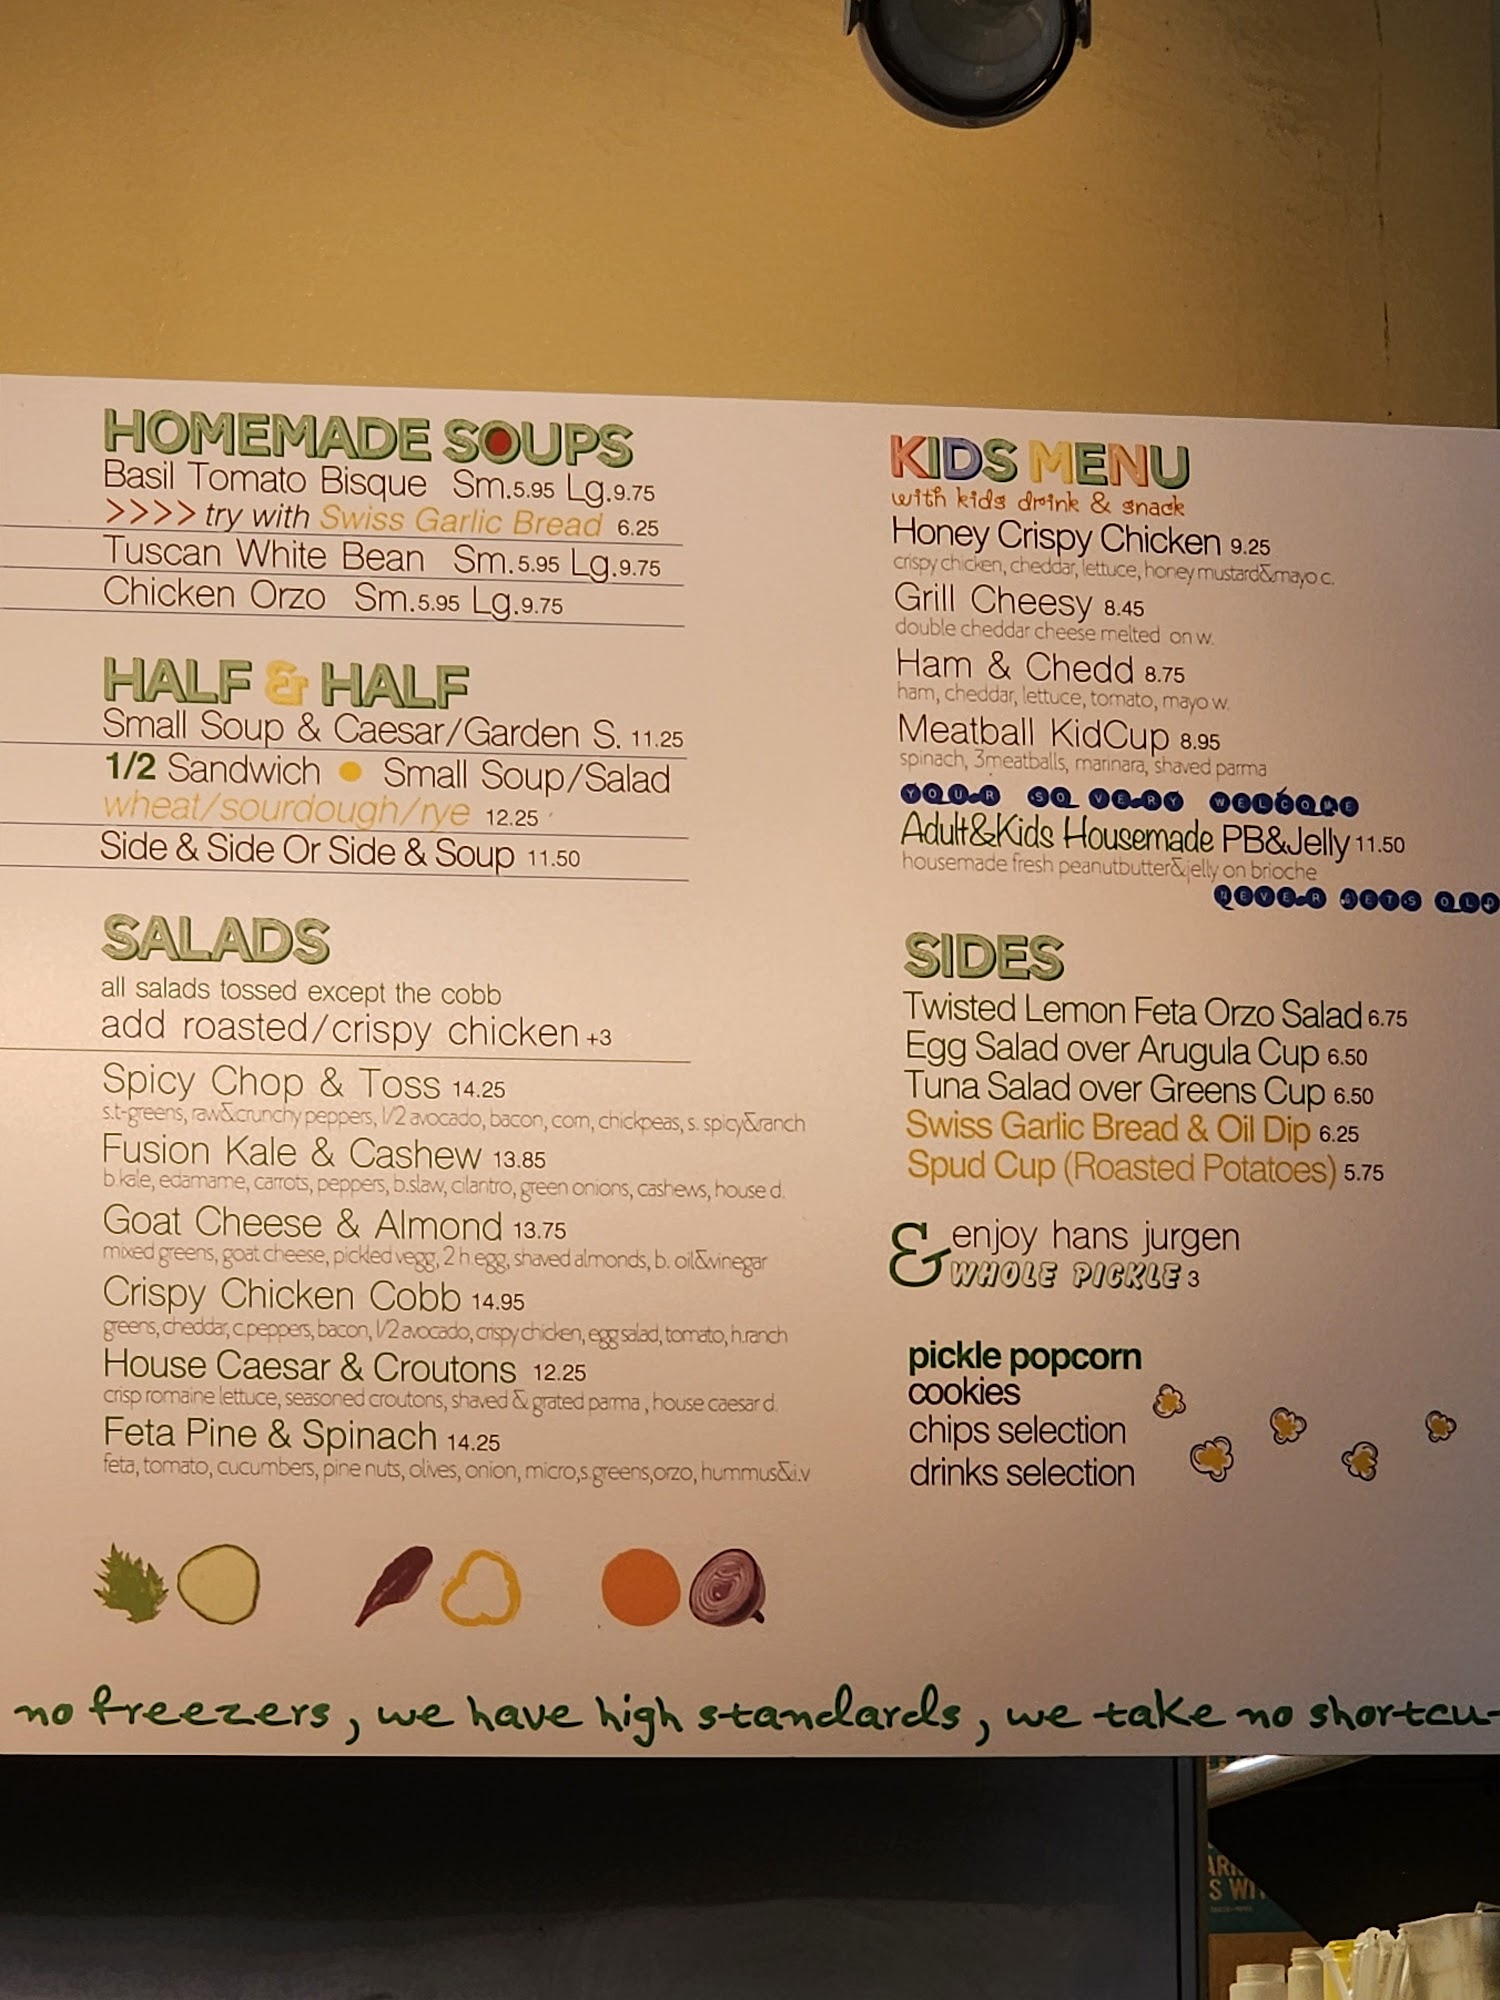 HOMEMADE SOUPS
Basil Tomato Bisque Sm.5.95 Lg.9.75
>>>> try with Swiss Garlic Bread 6.25
Tuscan White Bean Sm.5.95 Lg.9.75
Chicken Orzo Sm.5.95 Lg.9.75
HALF & HALF
Small Soup & Caesar/Garden S. 11.25
1/2 Sandwich • Small Soup/Salad
wheat/sourdough/rye 12.25
Side & Side Or Side & Soup 11.50
SALADS
all salads tossed except the cobb
add roasted/crispy chicken +3
Spicy Chop & Toss 14.25
s.t-greens, raw&crunchy peppers, 1/2 avocado, bacon, corn, chickpeas, s. spicy&ranch
Fusion Kale & Cashew 13.85
b.kale, edamame, carrots, peppers, b.slaw, cilantro, green onions, cashews, house d.
Goat Cheese & Almond 13.75
mixed greens, goat cheese, pickled vegg, 2 h.egg, shaved almonds, b. oil&vinegar
Crispy Chicken Cobb 14.95
greens, cheddar, c.peppers, bacon, 1/2 avocado, crispy chicken, egg salad, tomato, h.ranch
House Caesar & Croutons 12.25
crisp romaine lettuce, seasoned croutons, shaved & grated parma , house caesar d.
Feta Pine & Spinach 14.25
feta, tomato, cucumbers, pine nuts, olives, onion, micro,s.greens,orzo, hummus&i.v
KIDS MENU
with kids drink & snack
Honey Crispy Chicken 9.25
crispy chicken, cheddar, lettuce, honey mustard&mayo c.
Grill Cheesy 8.45
double cheddar cheese melted on w.
Ham & Chedd 8.75
ham, cheddar, lettuce, tomato, mayo w.
Meatball KidCup 8.95
spinach, 3meatballs, marinara, shaved parma
YOUR SO VERY WELCOME
Adult&Kids Housemade PB&Jelly 11.50
housemade fresh peanutbutter&jelly on brioche
NEVER GETS OLD
SIDES
Twisted Lemon Feta Orzo Salad 6.75
Egg Salad over Arugula Cup 6.50
Tuna Salad over Greens Cup 6.50
Swiss Garlic Bread & Oil Dip 6.25
Spud Cup (Roasted Potatoes) 5.75
& enjoy hans jurgen
WHOLE PICKLE 3
pickle popcorn
cookies
chips selection
drinks selection
no freezers, we have high standards, we take no shortcu